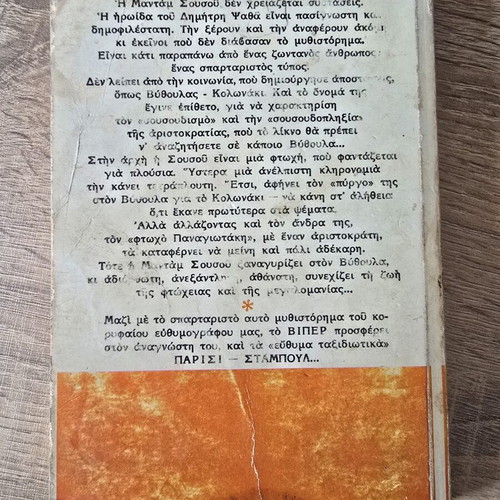 Ἡ Μαντάμ Σουσοῦ δὲν χρειάζεται συστάσεις.
Ἡ ἡρωίδα τοῦ Δημήτρη Ψαθᾶ εἶναι πασίγνωστη καὶ
δημοφιλέστατη. Τὴν ξέρουν καὶ τὴν ἀναφέρουν ἀκόμη
κι ἐκεῖνοι ποὺ δὲν διάβασαν τὸ μυθιστόρημα.
Εἶναι κάτι παραπάνω ἀπὸ ἕνας ζωντανὸς ἄνθρωπος:
ἕνας σπαρταριστὸς τύπος.
Δὲν λείπει ἀπὸ τὴν κοινωνία, ποὺ δημιούργησε ἀποστάσεις,
ὅπως Βύθουλας - Κολωνάκι. Καὶ τὸ ὄνομά της
ἔγινε ἐπίθετο, γιὰ νὰ χαρακτηρίση
τὸν «σουσουδισμὸ» καὶ τὴν «σουσουδοπληξία»
τῆς ἀριστοκρατίας, ποὺ τὸ λίκνο θὰ πρέπει
ν' ἀναζητήσετε σὲ κάποιο Βύθουλα...
Στὴν ἀρχὴ ἡ Σουσοῦ εἶναι μιὰ φτωχή, ποὺ φαντάζεται
γιὰ πλούσια. Ὕστερα μιὰ ἀνέλπιστη κληρονομιὰ
τὴν κάνει τετράπλουτη. Ἔτσι, ἀφήνει τὸν «πύργο» της
στὸν Βύθουλα γιὰ τὸ Κολωνάκι — νὰ κάνη στ' ἀλήθεια
ὅ,τι ἔκανε πρωτύτερα στὰ ψέματα.
Ἀλλὰ ἀλλάζοντας καὶ τὸν ἄνδρα της,
τὸν «φτωχὸ Παναγιωτάκη», μὲ ἕναν ἀριστοκράτη,
τὰ καταφέρνει νὰ μείνη καὶ πάλι ἀδέκαρη.
Τότε ἡ Μαντὰμ Σουσοῦ ξαναγυρίζει στὸν Βύθουλα,
κι ἀδιόρθωτη, ἀνεξάντλητη, ἀθάνατη, συνεχίζει τὴ ζωὴ
τῆς φτώχειας καὶ τῆς μεγαλομανίας...
Μαζὶ μὲ τὸ σπαρταριστὸ αὐτὸ μυθιστόρημα τοῦ κο-
ρυφαίου εὐθυμογράφου μας, τὸ ΒΙΠΕΡ προσφέρει
στὸν ἀναγνώστη του, καὶ τὰ «εὔθυμα ταξιδιωτικὰ»
ΠΑΡΙΣΙ — ΣΤΑΜΠΟΥΛ...